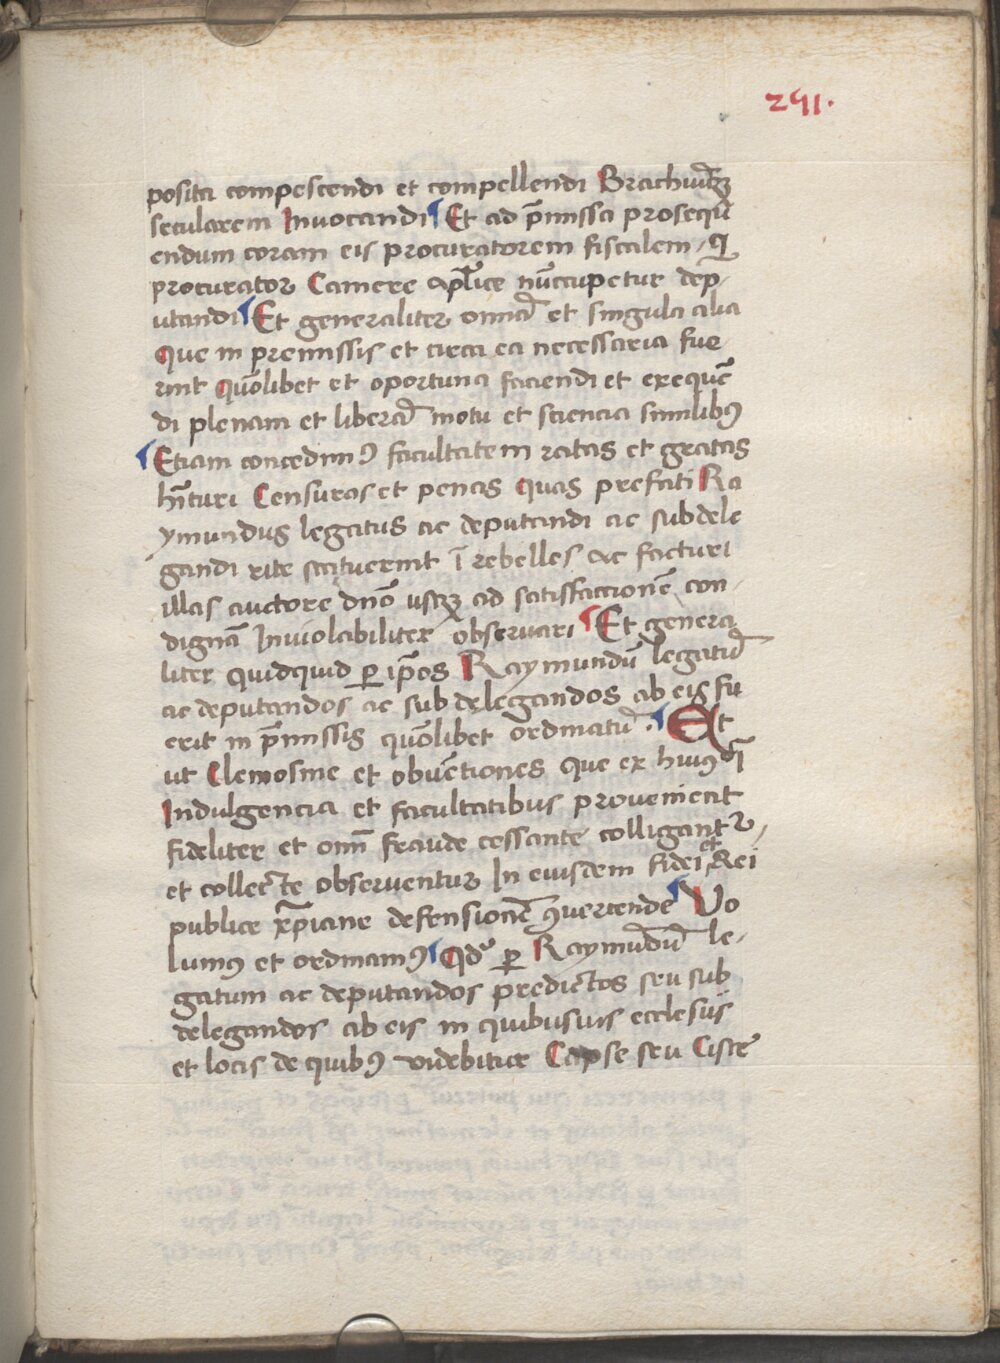 291.
posita compescendi et compellendi Brachiūqꝫ
secularem Inuocandi Et ad p̄missa prosequ
endum coram eis procuratorem fiscalem, qi
procurator Camere ap̄lice nūccupetur dep
utandi Et generaliter omnia et singula alia
Que in premissis et circa ea necessaria fue
rint quōlibet et oportuna faciendi et exequē
di plenam et liberā motu et sciencia similibꝰ
Etiam concedimꝰ facultatem ratas et gratas
hīturi Censuras et penas Quas prefati Ra
ymundus legatus ac deputandi ac subdele
gandi rite statuerint ī rebelles ac facturi
illas auctore dn̄o usqꝫ ad satisfactionē con
dignā Inuiolabiliter obseruari Et genera
liter quidquid ꝑ ip̄os Raymundū legatū
ac deputandos ac subdelegandos ab eis fu
erit in p̄missis quōlibet ordinatū. Et
ut Elemosine et obuētiones Que ex huiusdī
Indulgencia et facultatibus prouenient
fideliter et om̄i fraude cessante colligantur,
et collecte obseruentur In eiusdem fidei et Rei
publice xp̄iane defensionē ꝯuertende Vo
lumꝰ et ordinamꝰ Qdº ꝑ Raymūdū le-
gatum ac deputandos predictos seu sub
delegandos ab eis in quibusuis ecclesiis
et locis de quibꝰ videbitur Capse seu Ciste